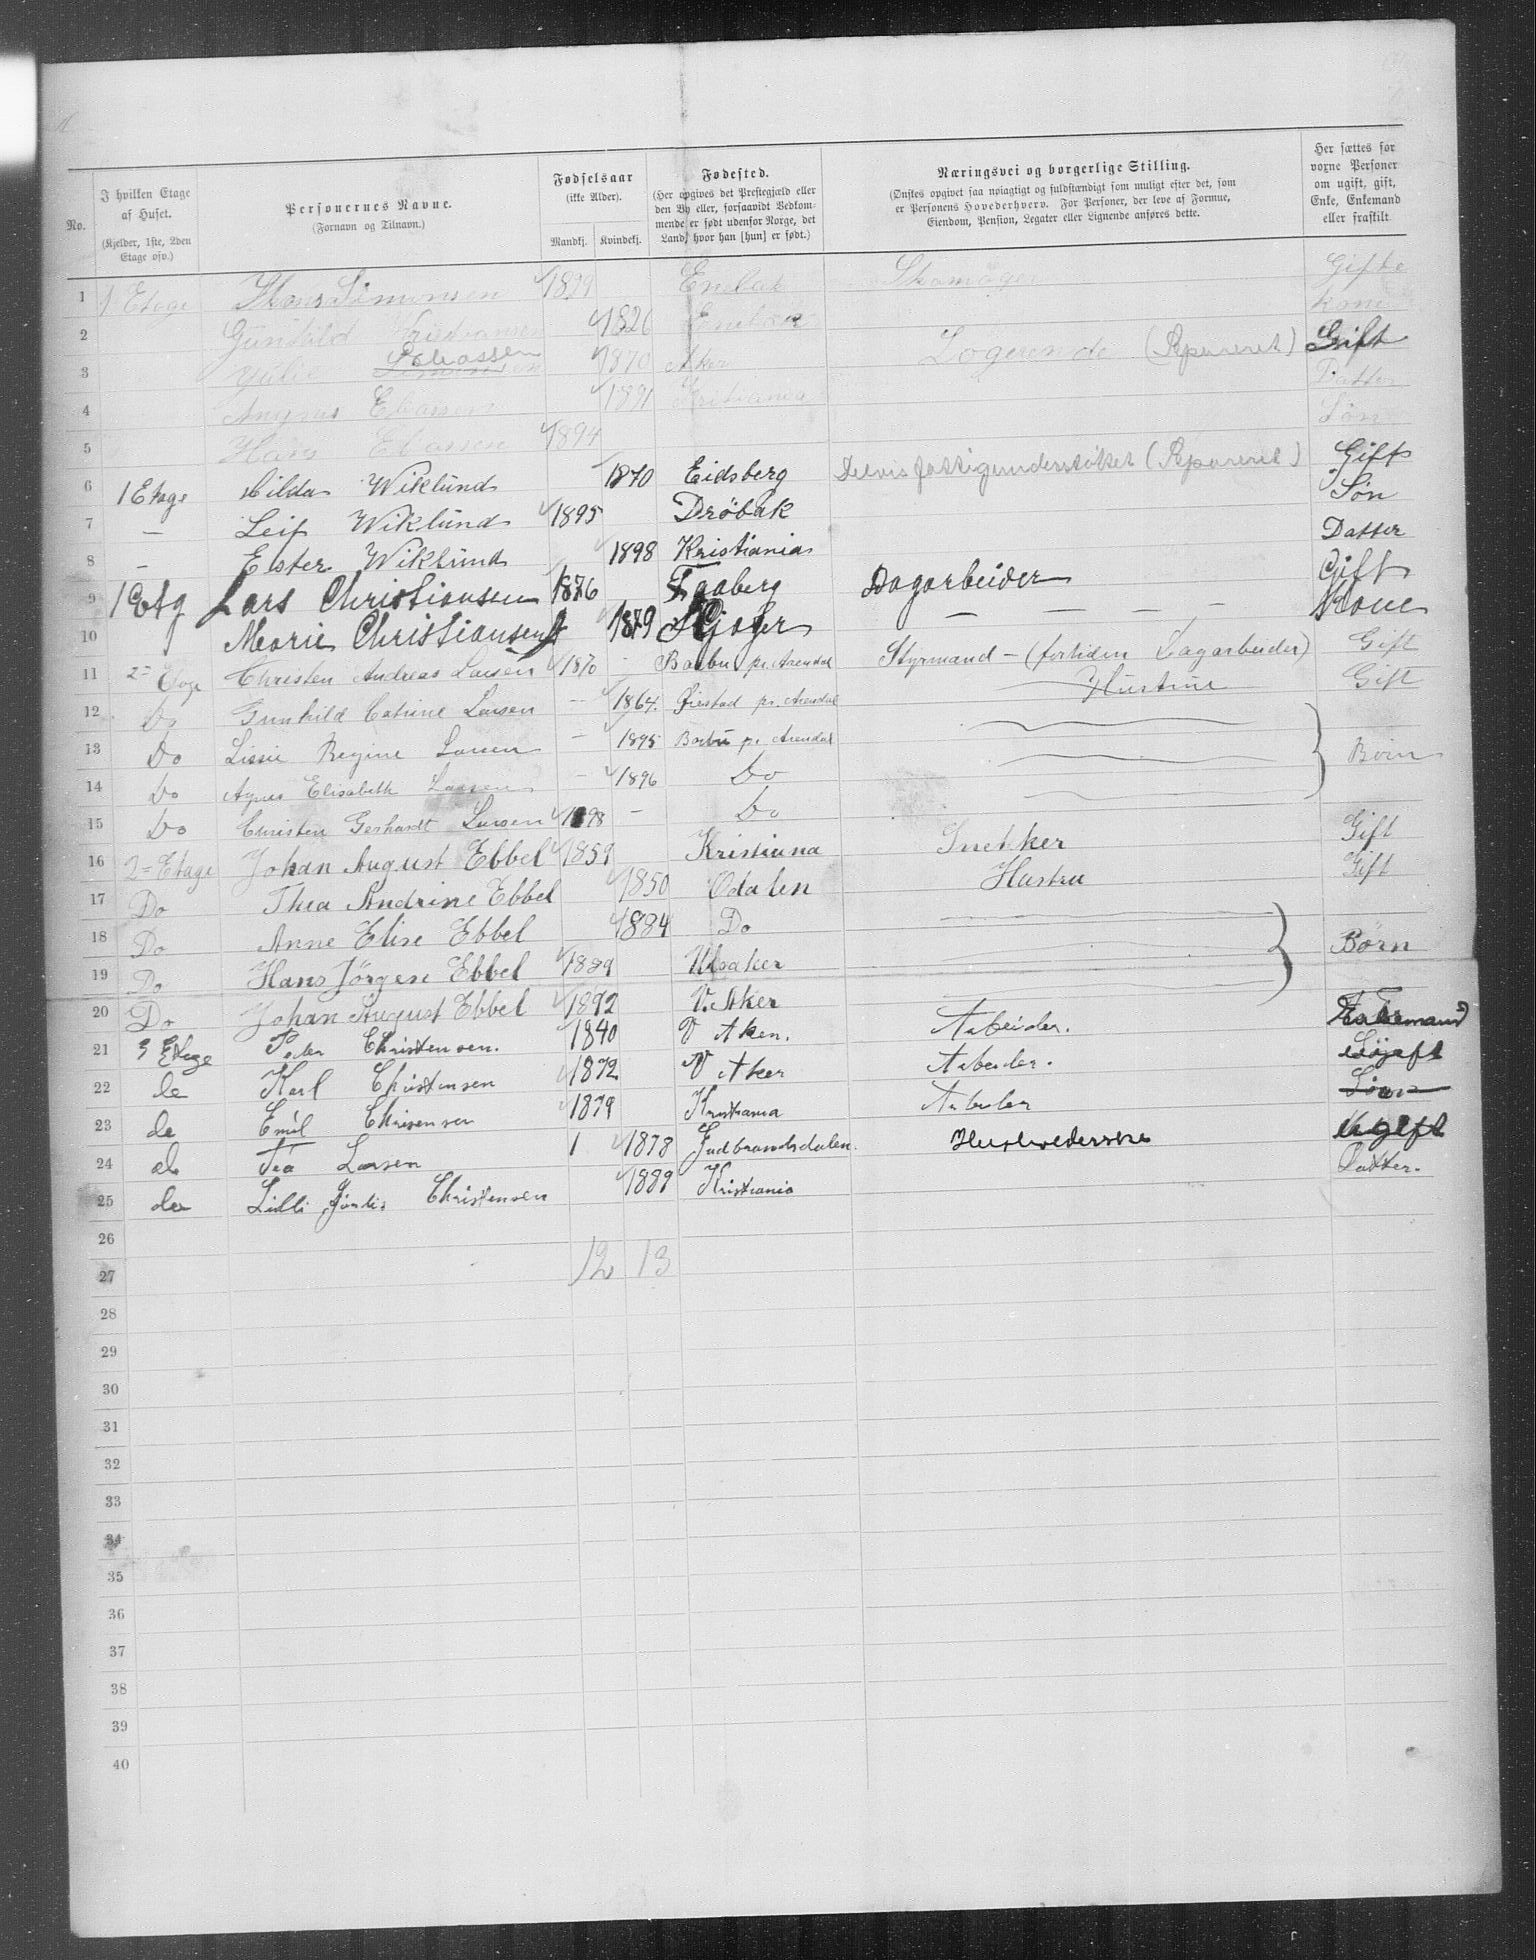 No.
I hvilken Etage af Huset. (Kjelder, 1ste, 2den Etage osv.)
Personernes Navne. (Fornavn og Tilnavn.)
Fødselsaar (ikke Alder). Mandkj. Kvindekj.
Fødested. (Her opgives det Prestegjæld eller den By eller, forsaavidt Vedkommende er født udenfor Norge, det Land, hvor han [hun] er født.)
Næringsvei og borgerlige Stilling. (Ønskes opgivet saa nøiagtigt og fuldstændigt som muligt efter det, som er Personens Hovederhverv. For Personer, der leve af Formue, Eiendom, Pension, Legater eller Lignende anføres dette.
Her sættes for voxne Personer om ugift, gift, Enke, Enkemand eller fraskilt
1 1 Etage Hans Simonsen 1829 Enebak Skomager Gifte
2 Gunhild 1826 Enebak Kone
3 Julie Eliassen 1870 Aker Logerende (Separeret) Gift
4 Eliassen 1891 Kristiania Datter
5 Hans Eliassen 1894 Søn
6 1 Etage Hilda Wiklund 1870 Eidsberg Delvis fattigunderstøttet (Separeret) Gift
7 — Leif Wiklund 1895 Drøbak Søn
8 — Ester Wiklund 1898 Kristiania Datter
9 1 Etg Lars Christiansen 1876 Faaberg Dagarbeider Gift
10 Marie Christiansen 1879 — — — — Kone
11 2 Etage Christen Andreas Larsen 1870 — Barbu pr. Arendal Styrmand — (fortiden Lagarbeider) Gift
12 Do Gunhild Catrine Larsen — 1864. Øiestad pr. Arendal Hustrue Gift
13 Do Lissie Regine Larsen — 1895 Barbu pr. Arendal
14 Do Agnes Elisabeth Larsen — 1896 Do Børn
15 Do Christen Gerhardt Larsen 1898 — Do
16 2 Etage Johan August Ebbel 1859 Kristiana Snekker Gift
17 Do Thea Andrine Ebbel 1850 Odalen Hustru Gift
18 Do Anne Elise Ebbel 1884 Do
19 Do Hans Jörgen Ebbel 1889 Børn
20 Do Johan August Ebbel 1892 V. Aker
21 3 Etage Peder Christensen. 1840 V Aker. Arbeider. Enkemand
22 de Karl Christensen 1872 V Aker Arbeider.
23 de Emil Chrisensen 1879 Kristiania Arbeider Søn
24 de Tea Larsen 1 1878 Gudbrandsdalen. Husholderske Ugift
25 de Lilli Christensen 1889 Kristiania Datter.
26
27 12 13
28
29
30
31
32
33
34
35
36
37
38
39
40